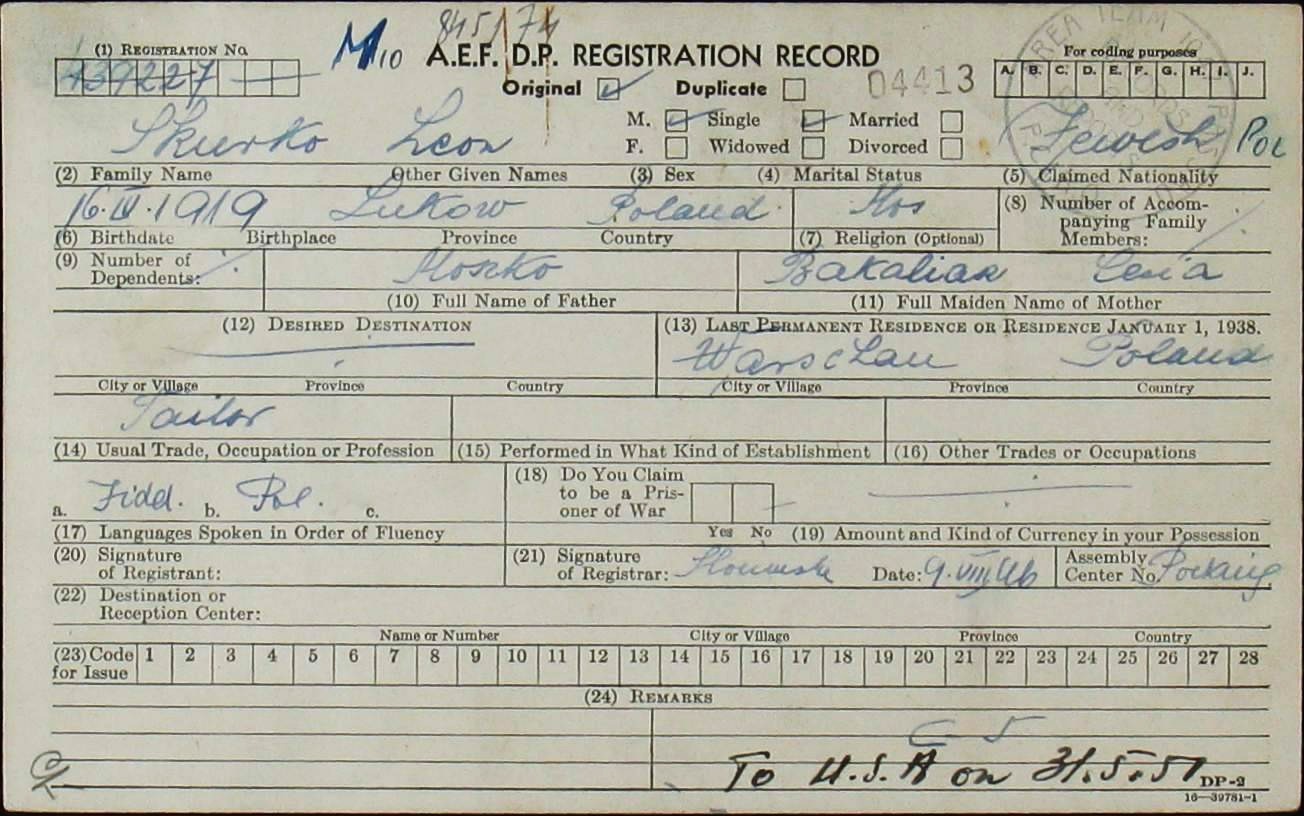 8451/74
(1) REGISTRATION No.
M10 A.E.F. D.P. REGISTRATION RECORD
For coding purposes
439227
Original Duplicate
04413
A. B. C. D. E. F. G. H. I. J.
Skurko Leon
M. Single Married
F. Widowed Divorced
Jewish Pol
(2) Family Name Other Given Names (3) Sex (4) Marital Status (5) Claimed Nationality
16.IV.1919 Lukow Poland Mos
(8) Number of Accompanying Family Members:
(6) Birthdate Birthplace Province Country (7) Religion (Optional)
(9) Number of Dependents:
Moszko Bakaliar
(10) Full Name of Father (11) Full Maiden Name of Mother
(12) DESIRED DESTINATION (13) LAST PERMANENT RESIDENCE OR RESIDENCE JANUARY 1, 1938.
Warschau Poland
City or Village Province Country City or Village Province Country
Tailor
(14) Usual Trade, Occupation or Profession (15) Performed in What Kind of Establishment (16) Other Trades or Occupations
a. Jidd. b. Pol. c.
(18) Do You Claim to be a Prisoner of War
Yes No
(17) Languages Spoken in Order of Fluency (19) Amount and Kind of Currency in your Possession
(20) Signature of Registrant: (21) Signature of Registrar: Date: 9.VIII 46 Assembly Center No. Pocking
(22) Destination or Reception Center:
Name or Number City or Village Province Country
(23) Code for Issue 1 2 3 4 5 6 7 8 9 10 11 12 13 14 15 16 17 18 19 20 21 22 23 24 25 26 27 28
(24) REMARKS
C 5
To U.S.A on 31.5.51
DP-2
16-39781-1